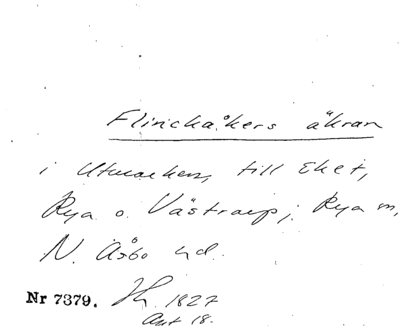 Flinckåkers åkran
i Utmarken, till Eket,
Rya o. Västraup i Rya sn,
N. Åsbo hd.
Nr 7379. Jh. 1827
Akt 18.